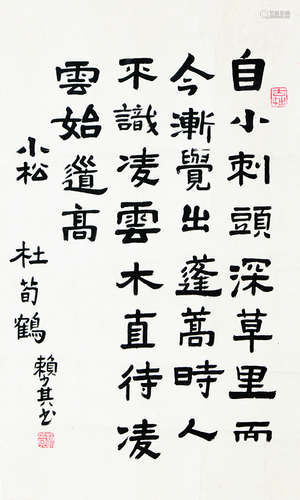 自小刺頭深草里而
今漸覺出蓬蒿時人
不識凌雲木直待凌
雲始道高
小松
杜荀鶴
賴少其书